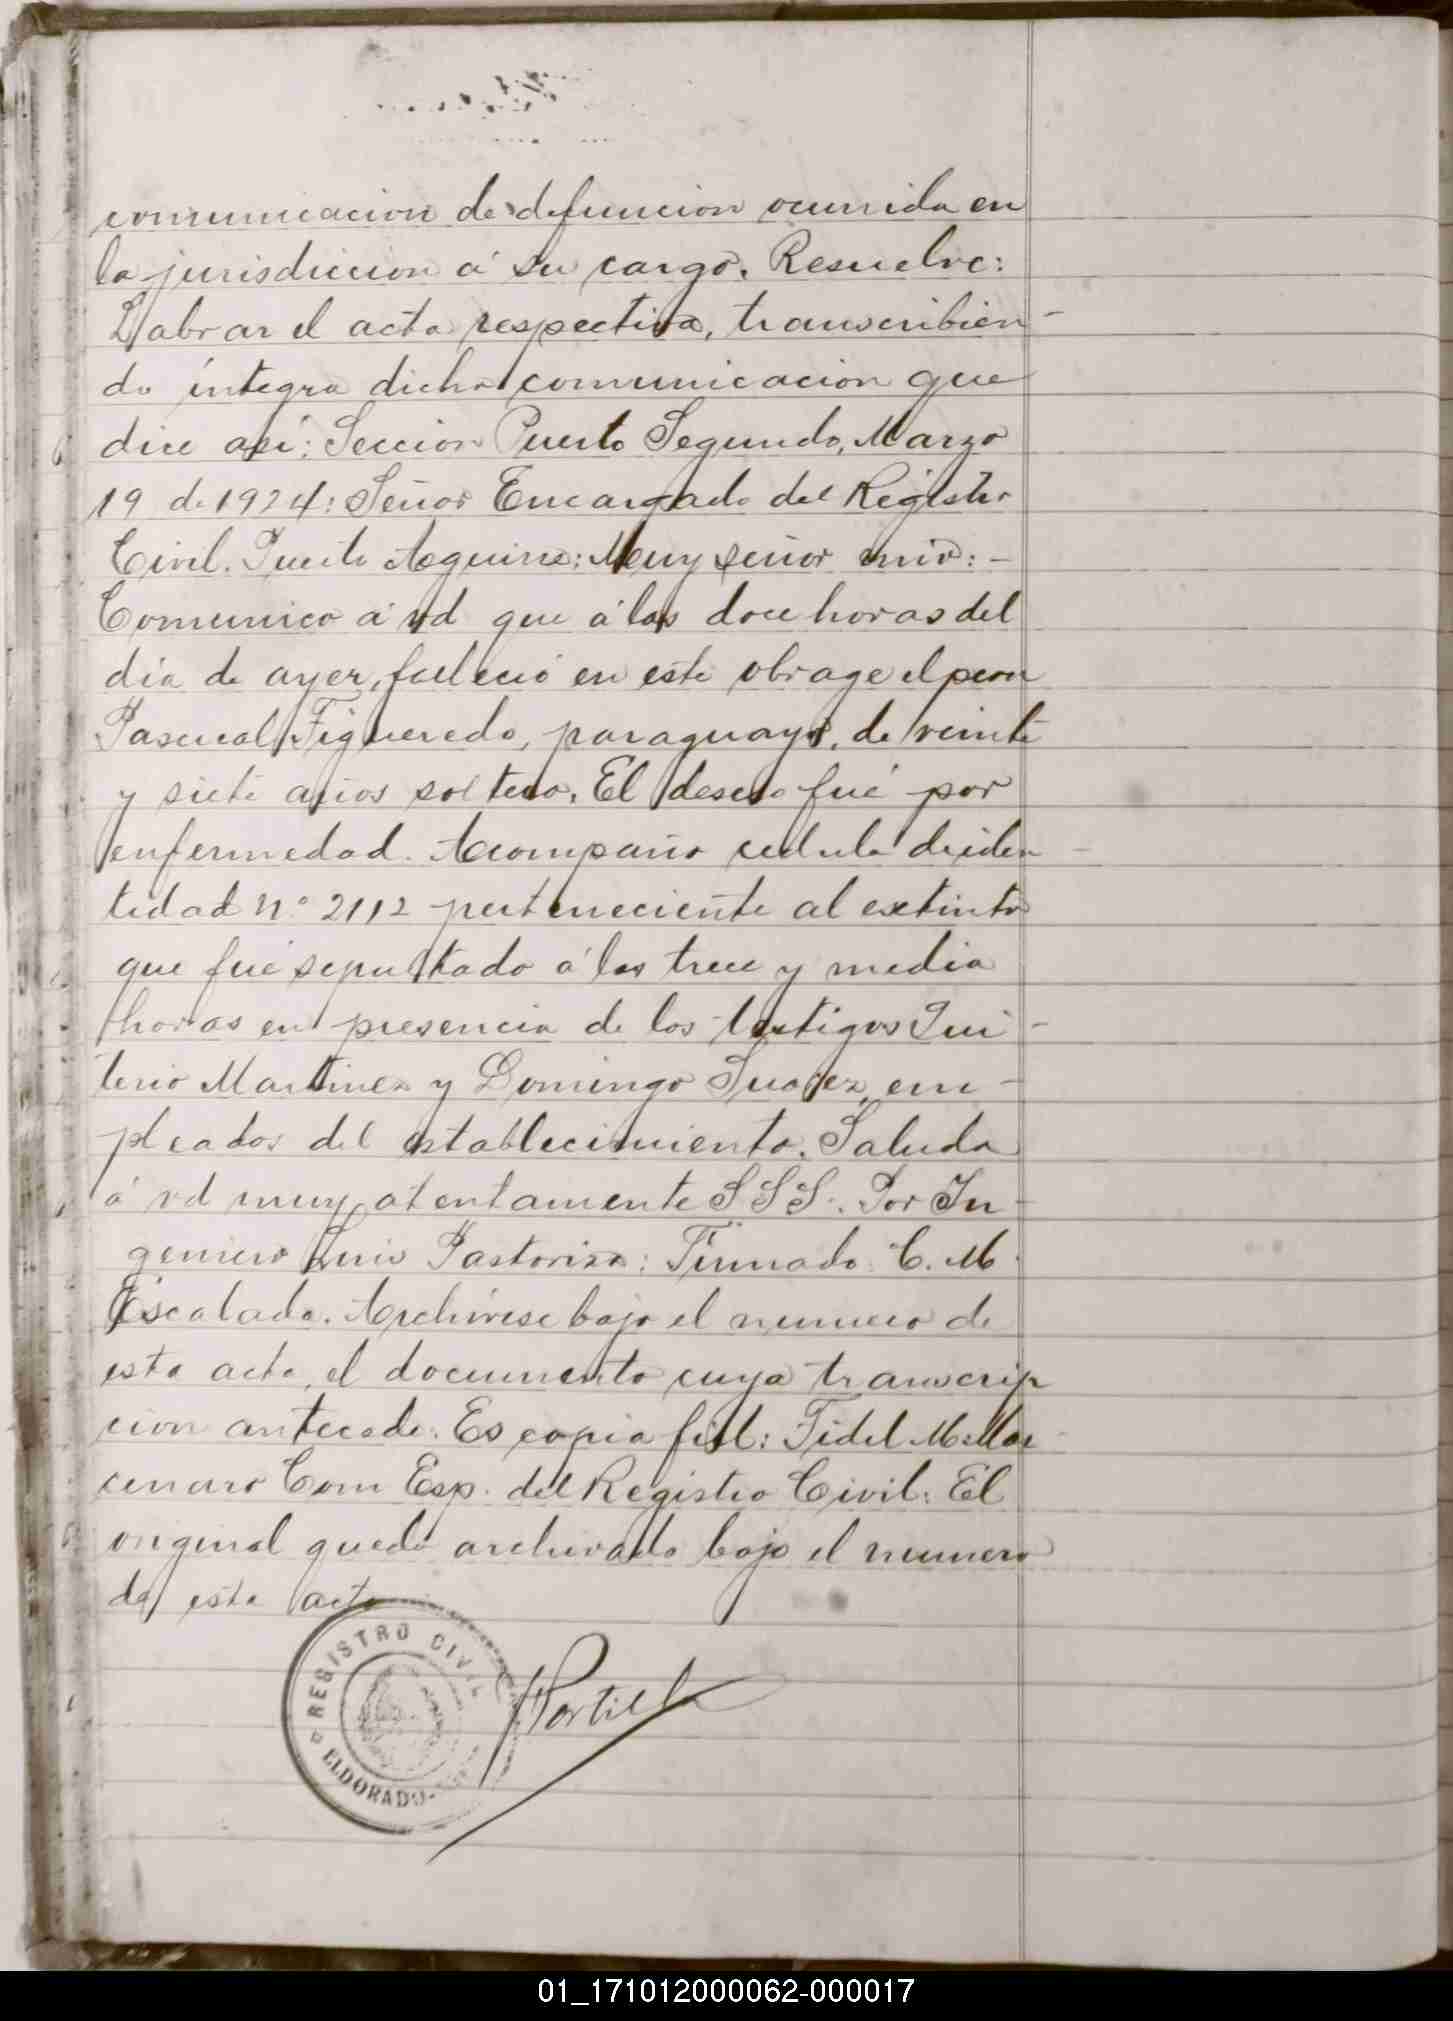 comunicacion de defuncion ocurrida en
la jurisdiccion á su cargo. Resuelve:
Labrar el acta respectiva, transcribien-
do integra dicha comunicacion que
dice asi: Seccion Puerto Segundo, Marzo
19 de 1924: Señor Encargado del Registro
Civil. Puerto Aguirre: Muy señor mio: -
Comunico á vd que á las doce horas del
dia de ayer, falleció en este obrage el peon
Pascual Figueredo, paraguayo, de veinte
y siete años soltero. El deseso fué por
enfermedad. Acompaño cedula de iden-
tidad Nº 2112 perteneciente al extinto
que fué sepultado á las trece y media
horas en presencia de los testigos Qui-
terio Martinez y Domingo Suarez, em-
pleados del establecimiento. Saluda
á vd muy atentamente S S S. Por In-
geniero Luis Pastoriza: Firmado C. M.
Escalada. Archívese bajo el numero de
esta acta, el documento cuya transcrip
cion antecede. Es copia fiel: Fidel M.
Com Esp. del Registro Civil: El
original queda archivado bajo el numero
de esta acta
REGISTRO CIVIL
ELDORADO
Portill
01_171012000062-000017